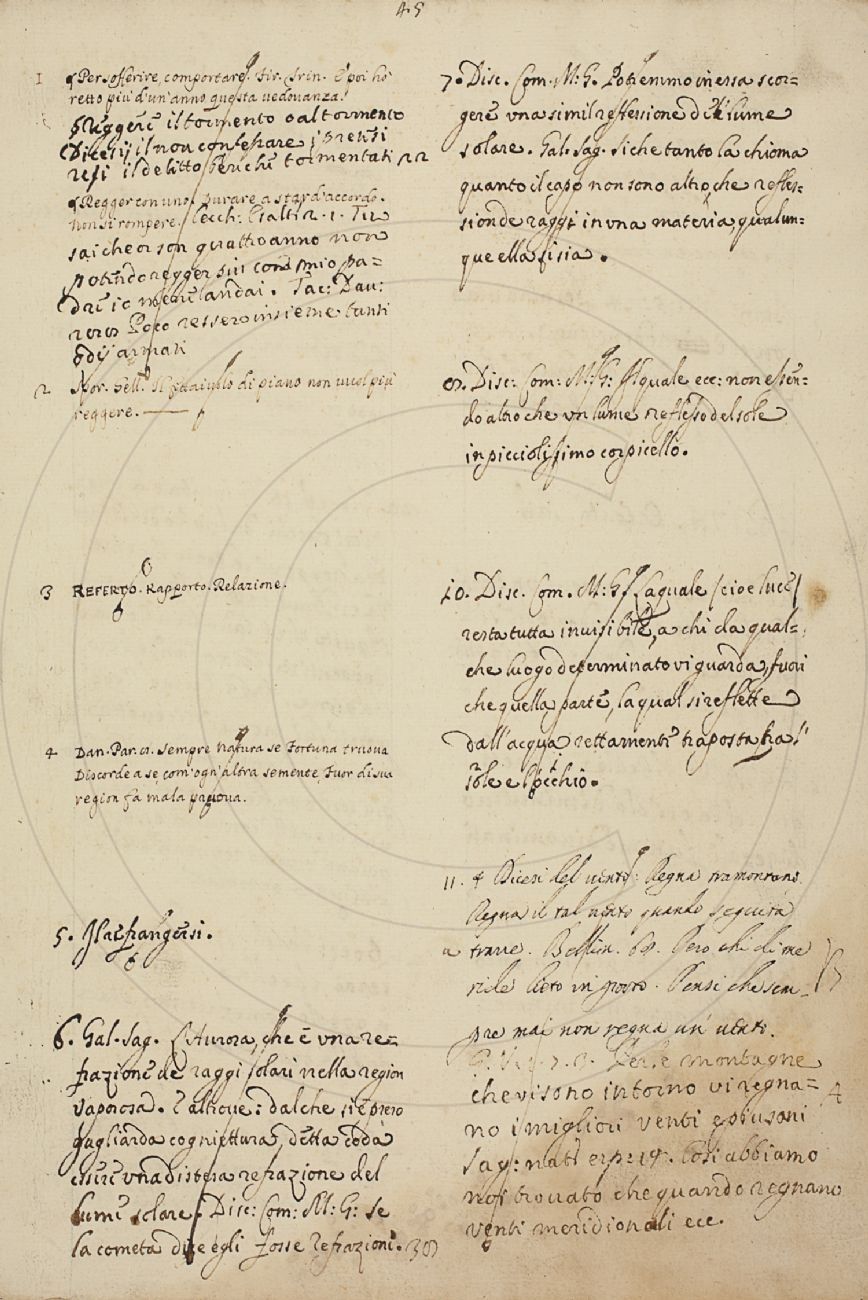 45
1 Per sofferire, comportare. Fir. Trin. E poi ho
retto più d'un'anno questa vedovanza.
Reggere il tormento o al tormento
Dicesi il non confessare i presi
resi il delitto perche tormentati
Regger con uno, durare a star d'accordo.
non si rompere. Cecch: Esalt: 2. 1. Tu
sai che or son quattro anno non
potendo regger piu con mio pa=
dre io me n'andai. Tac: Dav:
Poco ressero insieme tanti
odij armati
2 il di piano non vuol più
reggere.
3 REFERTO. Rapporto. Relazione.
4 Dan. Par. 8. Sempre natura se Fortuna truova
Discorde a se com'ogn'altra semente, Fuor di sua
region fa mala pruova.
5. Il rifrangersi.
6. Gal. Sag. L'Aurora, che è una re=
frazione de' raggi solari nella region
vaporosa. E altrove: dal che si è preso
gagliarda cogniettura, detta coda
essere una distesa refrazione del
lume solare. Disc: Com: M: G: se
la cometa dice egli fosse refrazione.
7. Disc. Com. M: G. Potremmo in essa scor=
gere una simil reflessione di lume
solare. Gal. Sag. Si che tanto la chioma
quanto il capo non sono altro, che refles=
sion de raggi in una materia qualun=
que ella si sia.
8. Disc: Com: M: G: Il quale ecc: non essen=
do altro che un lume reflesso del sole
in picciolissimo corpicello.
10. Disc. Com. M: G. La quale /cioè luce/
resta tutta invisibile, a chi da qual=
che luogo determinato vi guarda, fuori
che quella parte, la qual si reflette
dall'acqua rettamente traposta tra 'l
sole e l'occhio.
11. Dicesi del vento: Regna tramontana
Regna il tal vento quando seguita
a trarre. Bellin. 68. Però chi di me
ride lieto in porto. Pensi che sem=
pre mai non regna un' vento.
G. V. Per le montagne
che vi sono intorno vi regna=
no i migliori venti e piu sani
Sag: nat: esp: 19. Così abbiamo
noi trovato che quando regnano
venti meridionali ecc.